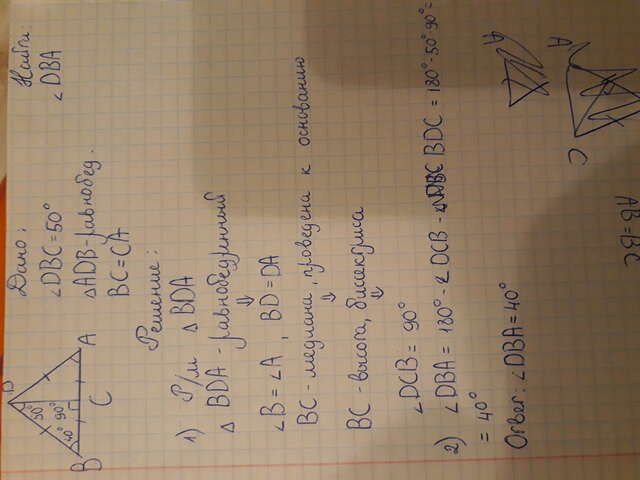 Дано:
∠DBC = 50°
△ADB - равнобед.
BC = CA
Найти:
∠DBA
B
40° 90° 50°
D
C
A
Решение:
1) Р/м △ BDA
△ BDA - равнобедренный
⇓
∠B = ∠A, BD = DA
BC - медиана, проведена к основанию
⇓
BC - высота, биссектриса
⇓
∠DCB = 90°
2) ∠DBA = 180° - ∠DCB - BDC = 180° - 50° 90° =
= 40°
Ответ: ∠DBA = 40°
AB = BC
C
A